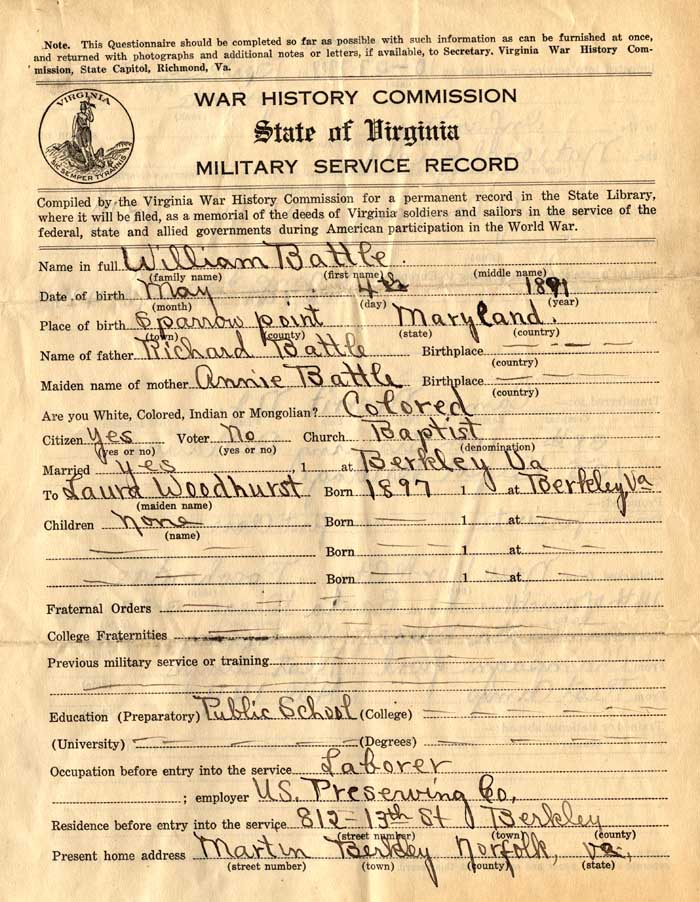 Note. This Questionnaire should be completed so far as possible with such information as can be furnished at once,
and returned with photographs and additional notes or letters, if available, to Secretary. Virginia War History Com-
mission, State Capitol, Richmond, Va.
VIRGINIA
SIC SEMPER TYRANNIS
WAR HISTORY COMMISSION
State of Virginia
MILITARY SERVICE RECORD
Compiled by the Virginia War History Commission for a permanent record in the State Library,
where it will be filed, as a memorial of the deeds of Virginia soldiers and sailors in the service of the
federal, state and allied governments during American participation in the World War.
Name in full William Battle.
(family name) (first name) (middle name)
Date of birth May 4th 1891
(month) (day) (year)
Place of birth Sparrow point Maryland.
(town) (county) (state) (country)
Name of father Richard Battle Birthplace
(country)
Maiden name of mother Annie Battle Birthplace
(country)
Are you White, Colored, Indian or Mongolian? Colored
Citizen Yes Voter No Church Baptist
(yes or no) (yes or no) (denomination)
Married yes 1 at Berkley Va
To Laura Woodhurst Born 1897 1 at Berkley, Va
(maiden name)
Children none Born 1 at
(name)
Born 1 at
Born 1 at
Fraternal Orders
College Fraternities
Previous military service or training
Education (Preparatory) Public School (College)
(University) (Degrees)
Occupation before entry into the service Laborer
; employer U.S. Preserving Co,
Residence before entry into the service 812 - 13th St Berkley
(street number) (town) (county)
Present home address Martin Berkley Norfolk, Va,
(street number) (town) (county) (state)